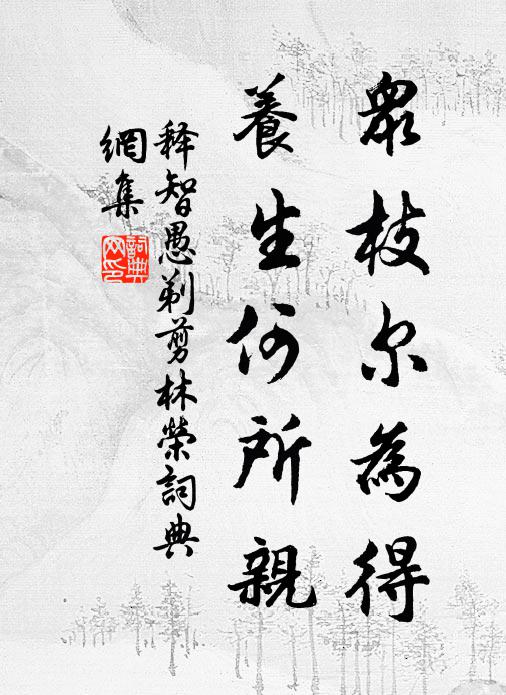 眾枝尔為得
養生何所親
释智愚剃剪林榮詞典
網集
詞典
网印